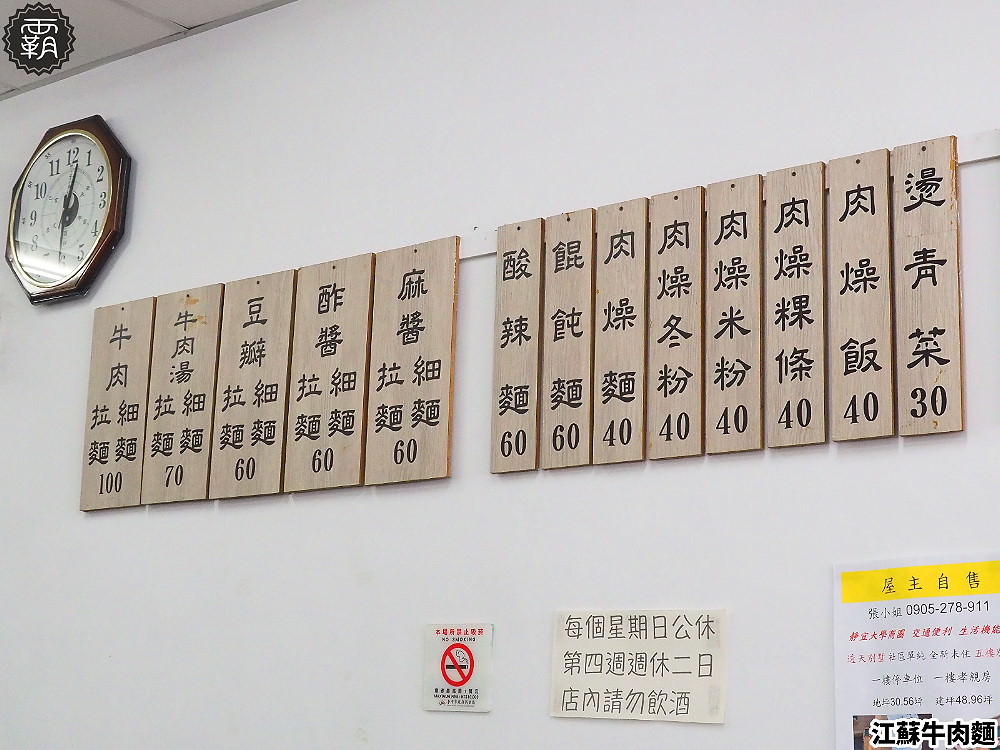 霸
12
1
2
3
4
8
9
10
11
牛肉
拉麵 細麵
100
牛肉湯
拉麵 細麵
70
豆瓣
拉麵 細麵
60
酢醬
拉麵 細麵
60
麻醬
拉麵 細麵
60
酸辣麵
60
餛飩麵
60
肉燥麵
40
肉燥冬粉
40
肉燥米粉
40
肉燥粿條
40
肉燥飯
40
燙青菜
30
本場所禁止吸菸
NO SMOKING
每個星期日公休
第四週週休二日
店內請勿飲酒
屋主自售
張小姐 0905-278-911
靜宜大學商圈 交通便利 生活機能
透天別墅 社區單純 全新未住 五樓
一樓停車位 一樓孝親房
地坪30.56坪 建坪48.96坪
江蘇牛肉麵